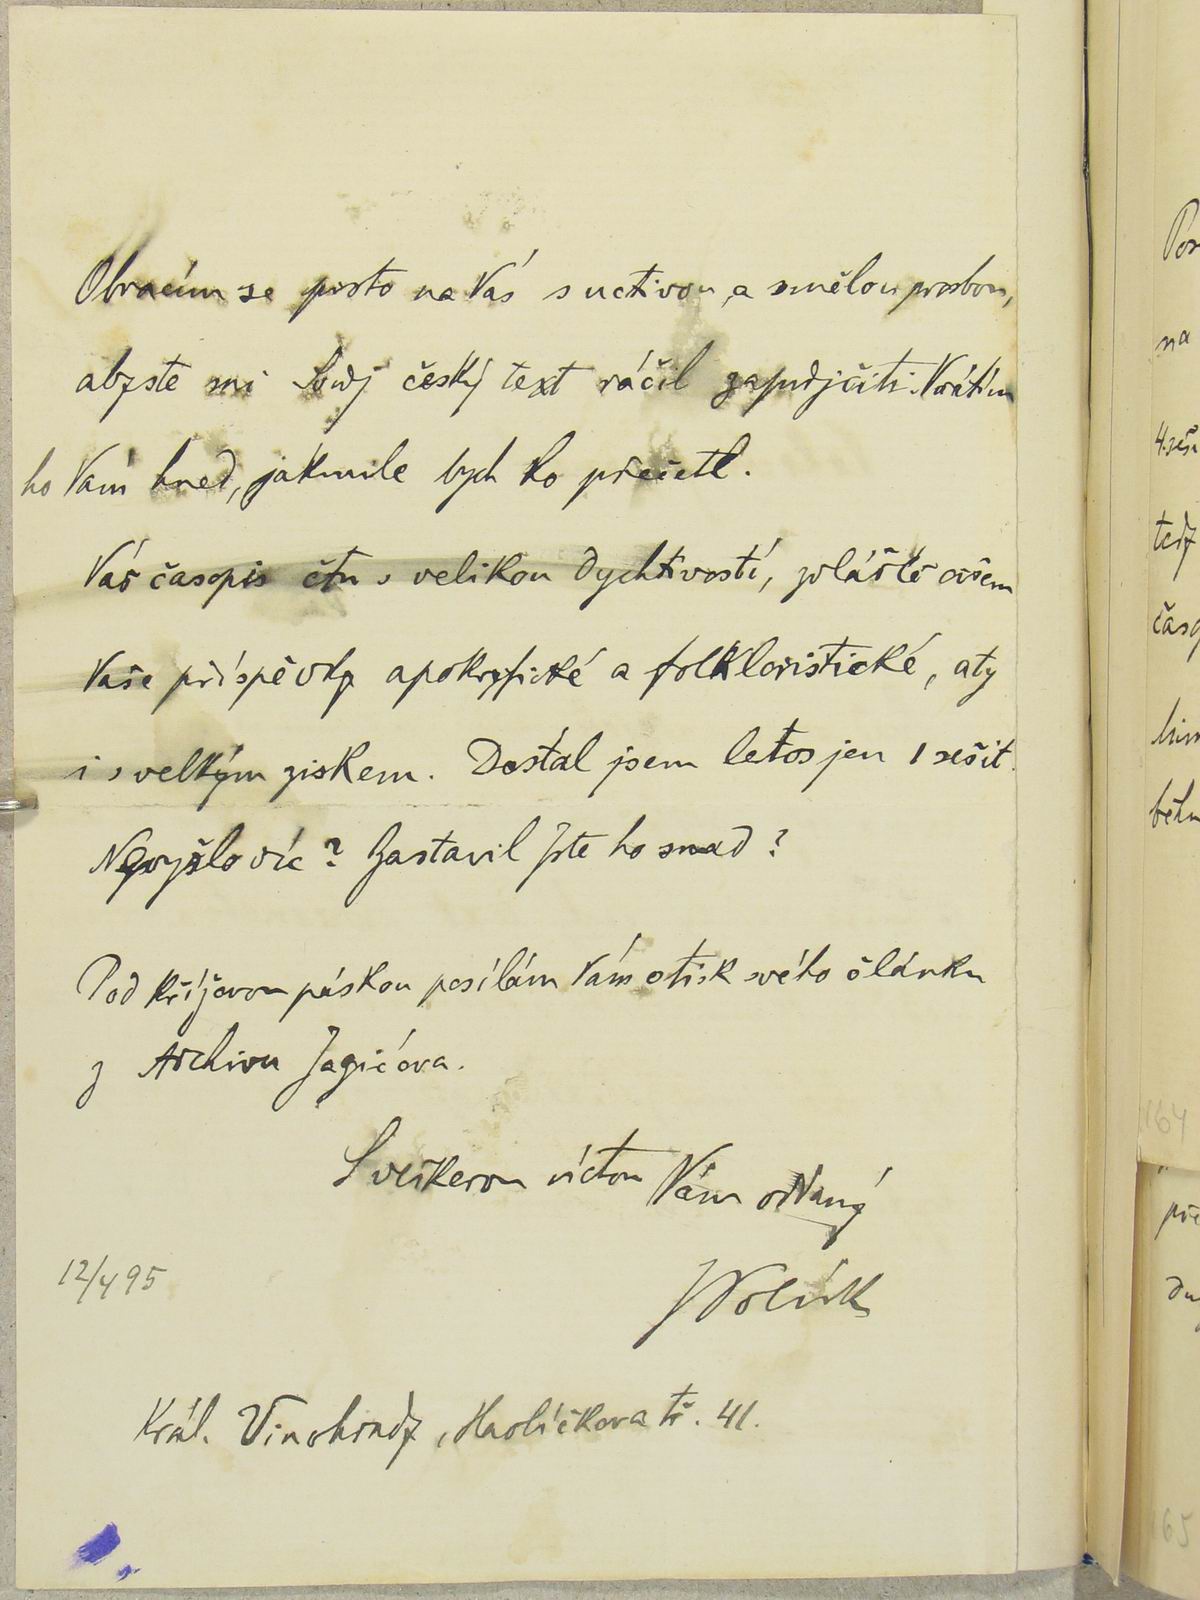 Obracím se proto na Vás s uctivou, a smělou prosbou,
abyste mi svůj český text ráčil zapůjčiti. Vrátím
ho Vám hned, jakmile bych ho přečetl.
Váš časopis čtu s velikou dychtivostí, zvláště ovšem
Vaše příspěvky apokryfické a folkloristické, aty
i s velkým ziskem. Dostal jsem letos jen 1 sešit.
Nevyšlo víc? Zastavil jste ho snad?
Pod křížovou páskou posílám Vám otisk svého článku
z Archivu Jagićova.
S veškerou úctou Vám oddaný
JPolívk
12/4 95
Král. Vinohrady, Havlíčkova tř. 41.
na
4. seši
tedy
časo
během
164
65